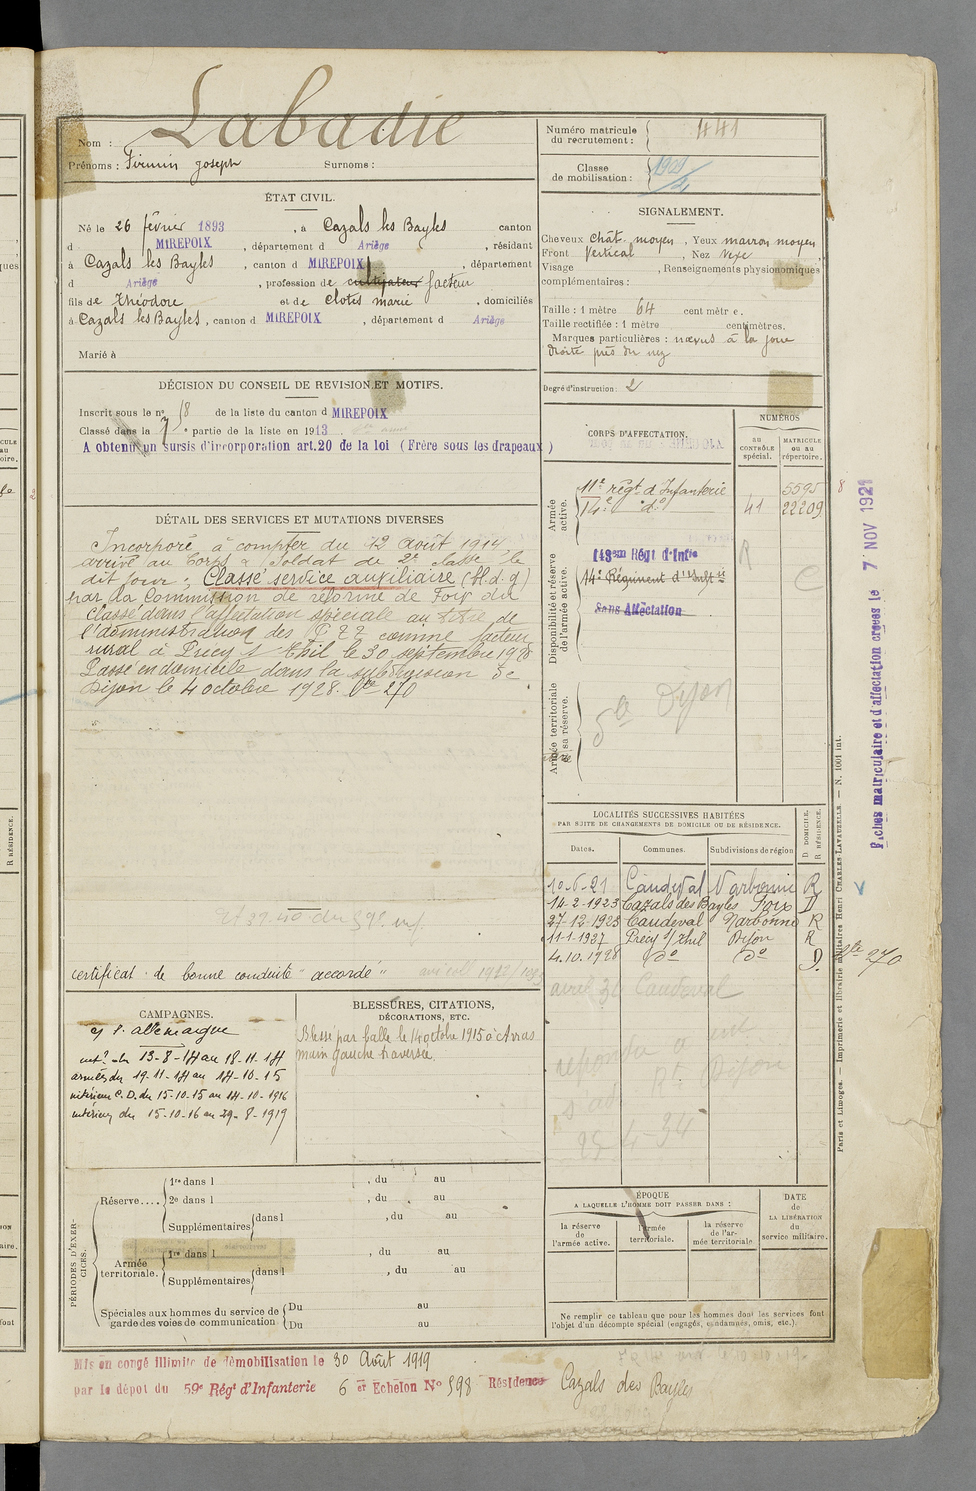 Labadie
Nom :
Prénoms : Firmin Joseph Surnoms :
Numéro matricule du recrutement : 441
Classe de mobilisation :
ÉTAT CIVIL.
Né le 26 février 1893, à Cazals les Bayles canton
d MIREPOIX, département d Ariège, résidant
à Cazals les Bayles, canton d MIREPOIX, département
d Ariège, profession de cultivateur facteur
fils de Théodore et de Clotes marie, domiciliés
à Cazals les Bayles, canton d MIREPOIX, département d Ariège
Marié à
SIGNALEMENT.
Cheveux chât. moyen, Yeux marron moyen
Front Vertical, Nez Vexe
Visage , Renseignements physionomiques
complémentaires :
Taille : 1 mètre 64 centimètre.
Taille rectifiée : 1 mètre centimètres.
Marques particulières : nœvus à la joue
droite près du nez
Degré d'instruction : 2
DÉCISION DU CONSEIL DE REVISION ET MOTIFS.
Inscrit sous le n° 18 de la liste du canton d MIREPOIX
Classé dans la 7° partie de la liste en 1913
A obtenu un sursis d'incorporation art.20 de la loi (Frère sous les drapeaux)
DÉTAIL DES SERVICES ET MUTATIONS DIVERSES
Incorporé à compter du 12 août 1914,
arrivé au Corps & Soldat de 2e classe le
dit jour. Classé service auxiliaire (bl.d.g)
par la Commission de réforme de Foix du
Classé dans l'affectation spéciale au titre de
l'administration des PTT comme facteur
rural à Précy s/ Thil le 30 septembre 1928
Passé en domicile dans la subdivision de
Dijon le 4 octobre 1928. Vte 270
certificat de bonne conduite "accordé"
CORPS D'AFFECTATION.
NUMÉROS
au CONTRÔLE spécial.
MATRICULE ou au répertoire.
Armée active.
11e régt d'Infanterie 5595
14e d° 41 22209
Disponibilité et réserve de l'armée active.
143em Régt d'Infie
14e Régiment d'Inft ie
Sans Affectation
Armée territoriale et sa réserve.
Dijon
LOCALITÉS SUCCESSIVES HABITÉES
PAR SUITE DE CHANGEMENTS DE DOMICILE OU DE RÉSIDENCE.
Dates. Communes. Subdivisions de région D. DOMICILE. R. RÉSIDENCE.
10-6-21 Caudeval Narbonne R
14-2-1923 Cazals des Bayles Foix D
27-12-1923 Caudeval Narbonne R
11-1-1927 Précy s/ Thil Dijon R
4.10.1928 d° d° D. Vte 270
avril 34 Caudeval
25 4-34
CAMPAGNES.
c/ l'allemagne
int? du 13-8-14 au 18-11-14
armées du 19-11-14 au 14-10-15
intérieur C.D. du 15-10-15 au 14-10-1916
intérieur du 15-10-16 au 29-8-1919
BLESSURES, CITATIONS, DÉCORATIONS, ETC.
Blessé par balle le 14 octobre 1915 à Arras
main gauche traversée.
PÉRIODES D'EXERCICES.
Réserve.... 1re dans l , du au
2e dans l , du au
Supplémentaires dans l , du au
Armée territoriale. 1re dans l , du au
Supplémentaires dans l , du au
Spéciales aux hommes du service de garde des voies de communication Du au
Du au
ÉPOQUE
A LAQUELLE L'HOMME DOIT PASSER DANS :
la réserve de l'armée active.
l'armée territoriale.
la réserve de l'armée territoriale
DATE de LA LIBÉRATION du service militaire.
Ne remplir ce tableau que pour les hommes dont les services font
l'objet d'un décompte spécial (engagés, condamnés, omis, etc.).
Mis en congé illimité de démobilisation le 30 Août 1919
par le dépôt du 59e Régt d'Infanterie 6 e Echelon N° 598 Résidence Cazals des Bayles
Fiches matriculaire et d'affectation créées le 7 NOV 1921
Paris et Limoges. — Imprimerie et librairie militaires Henri CHARLES-LAVAUZELLE. — N. 1001 int.